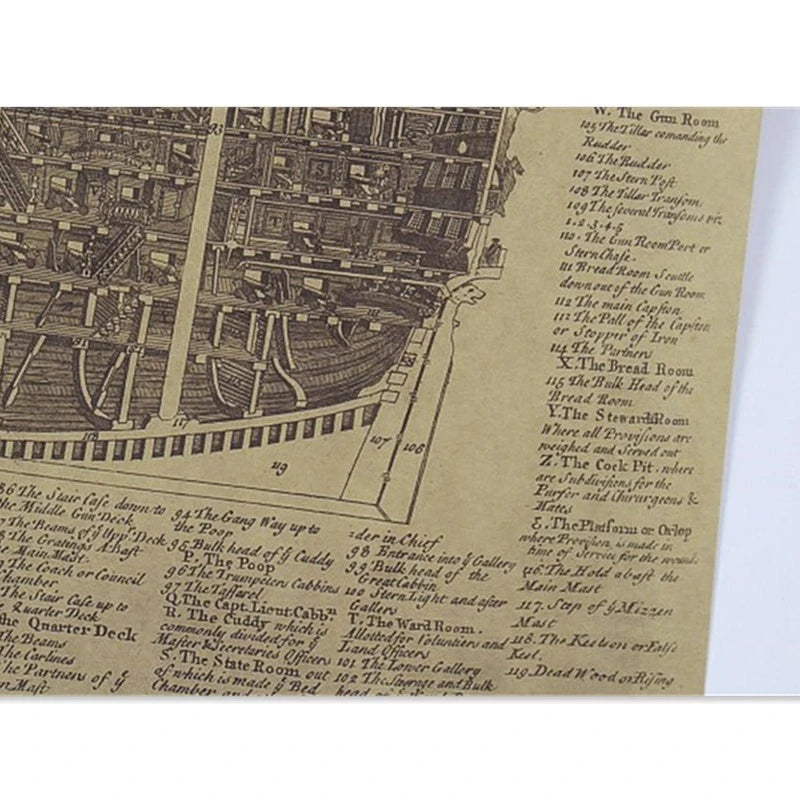 93
S
T
111
91
118
117
107
106
119
86 The Stair Case down to
the Middle Gun Deck
The Beams of ỹ Upp.ͬ Deck
The Gratings Abaft
the Main Mast
The Coach or Council
Chamber
The Stair Case up to
Quarter Deck
the Quarter Deck
The Beams
The Carlines
The Partners of ỹ
Main Mast
94 The Gang Way up to
the Poop
95 Bulk head of ỹ Cuddy
P. The Poop
96 The Trumpeters Cabbins
97 The Taffarel
Q. The Capt. Lieut: Cabbⁿ
R. The Cuddy which is
commonly divided for ỹ
Master & Secretaries Officers
S. The State Room out
of which is made ỹ Bed
Chamber and
der in Chief
98 Entrance into ỹ Gallery
99 Bulk head of the
Great Cabbin
100 Stern Light and after
Gallery
T. The Ward Room.
Allotted for Voluntiers and
Land Officers
101 The Lower Gallery
102 The Steerage and Bulk
head of
W. The Gun Room
105 The Tillar comanding the
Rudder
106 The Rudder
107 The Stern Post
108 The Tillar Transom.
109 The several Transoms viz.
1.2.3.4.5
110. The Gun Room Port or
Stern Chase.
111 Bread Room Scuttle
down out of the Gun Room
112 The main Capston
113 The Pall of the Capston
or Stopper of Iron
114 The Partners
X. The Bread Room
115 The Bulk Head of the
Bread Room
Y. The Steward Room
Where all Provisions are
weighed and Served out
Z. The Cock Pit. where
are Subdivisions for the
Purser and Chirurgeons &
Mates
&. The Platform or Orlop
where Provision is made in
time of Service for the wounded
116. The Hold abaft the
Main Mast
117. Step of ỹ Mizzen
Mast
118. The Keelson or False
Keel.
119. Dead Wood or Rising